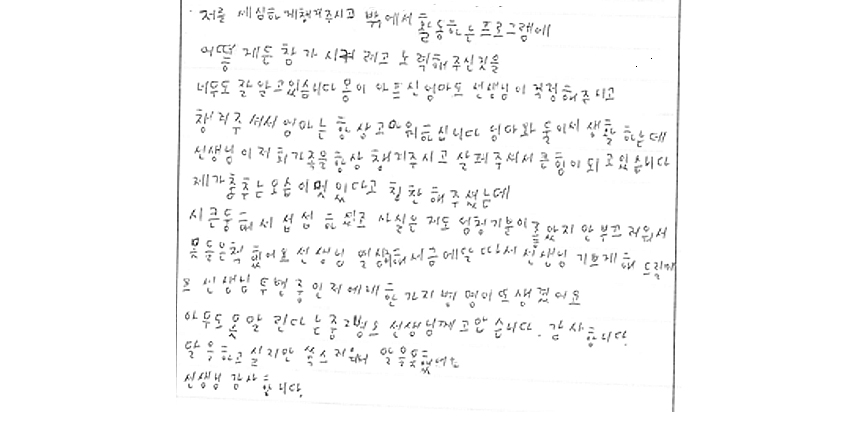 저를 세심하게챙겨주시고 밖에서 활동하는프로그램에
어떻게든 참가시켜 려고 노력해주신것을
너무도 잘알고있습니다 몸이 아프신엄마도 선생님이 걱정해주시고
챙겨주셔서 엄마는 항상고마워하십니다 엄마와 둘이서 생활하는데
선생님이 저희가족을 항상 챙겨주시고 살펴주셔서 큰힘이되고있습니다
제가춤추는모습이멋있다고 칭찬해주셨는데
시큰둥해서 섭섭하셨죠 사실은 저도 엄청기분이좋았지만부끄러워서
못들은척했어요 선생님 열심히해서금메달따서 선생님 기쁘게해드릴께
요 선생님 투병중인저에게 한가지병명이또생겼어요
아무도못말린다는중2병요 선생님께고맙습니다. 감사합니다.
말은하고싶지만 쑥스러워서 말을못했어요
선생님 감사합니다.